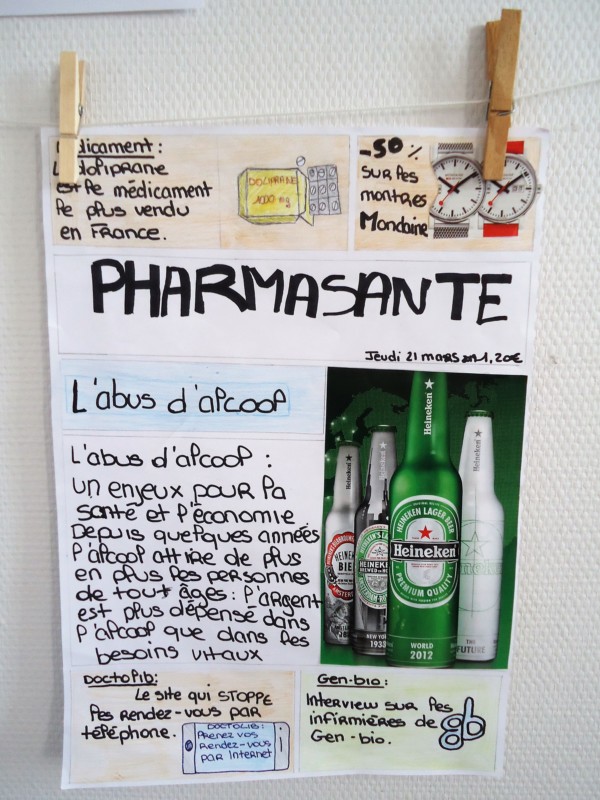 Médicament :
Le doliprane
est le médicament
le plus vendu
en France.
DOLIPRANE
1000 mg
-50%
sur les
montres
Mondaine
PHARMASANTE
Jeudi 21 mars 1,20€
L'abus d'alcool
L'abus d'alcool :
un enjeux pour la
santé et l'économie
Depuis quelques années
l'alcool attire de plus
en plus les personnes
de tout âges : l'argent
est plus dépensé dans
l'alcool que dans les
besoins vitaux
Heineken
Heineken
Heineken
Heineken
HEINEKEN LAGER BEER
Heineken
PREMIUM QUALITY
WORLD
2012
NEW YORK
1933
THE
FUTURE
Doctolib:
Le site qui STOPPE
les rendez-vous par
téléphone.
DOCTOLIB:
Prenez vos
rendez-vous
par Internet
Gen-bio :
Interview sur les
infirmières de
Gen-bio.
gb